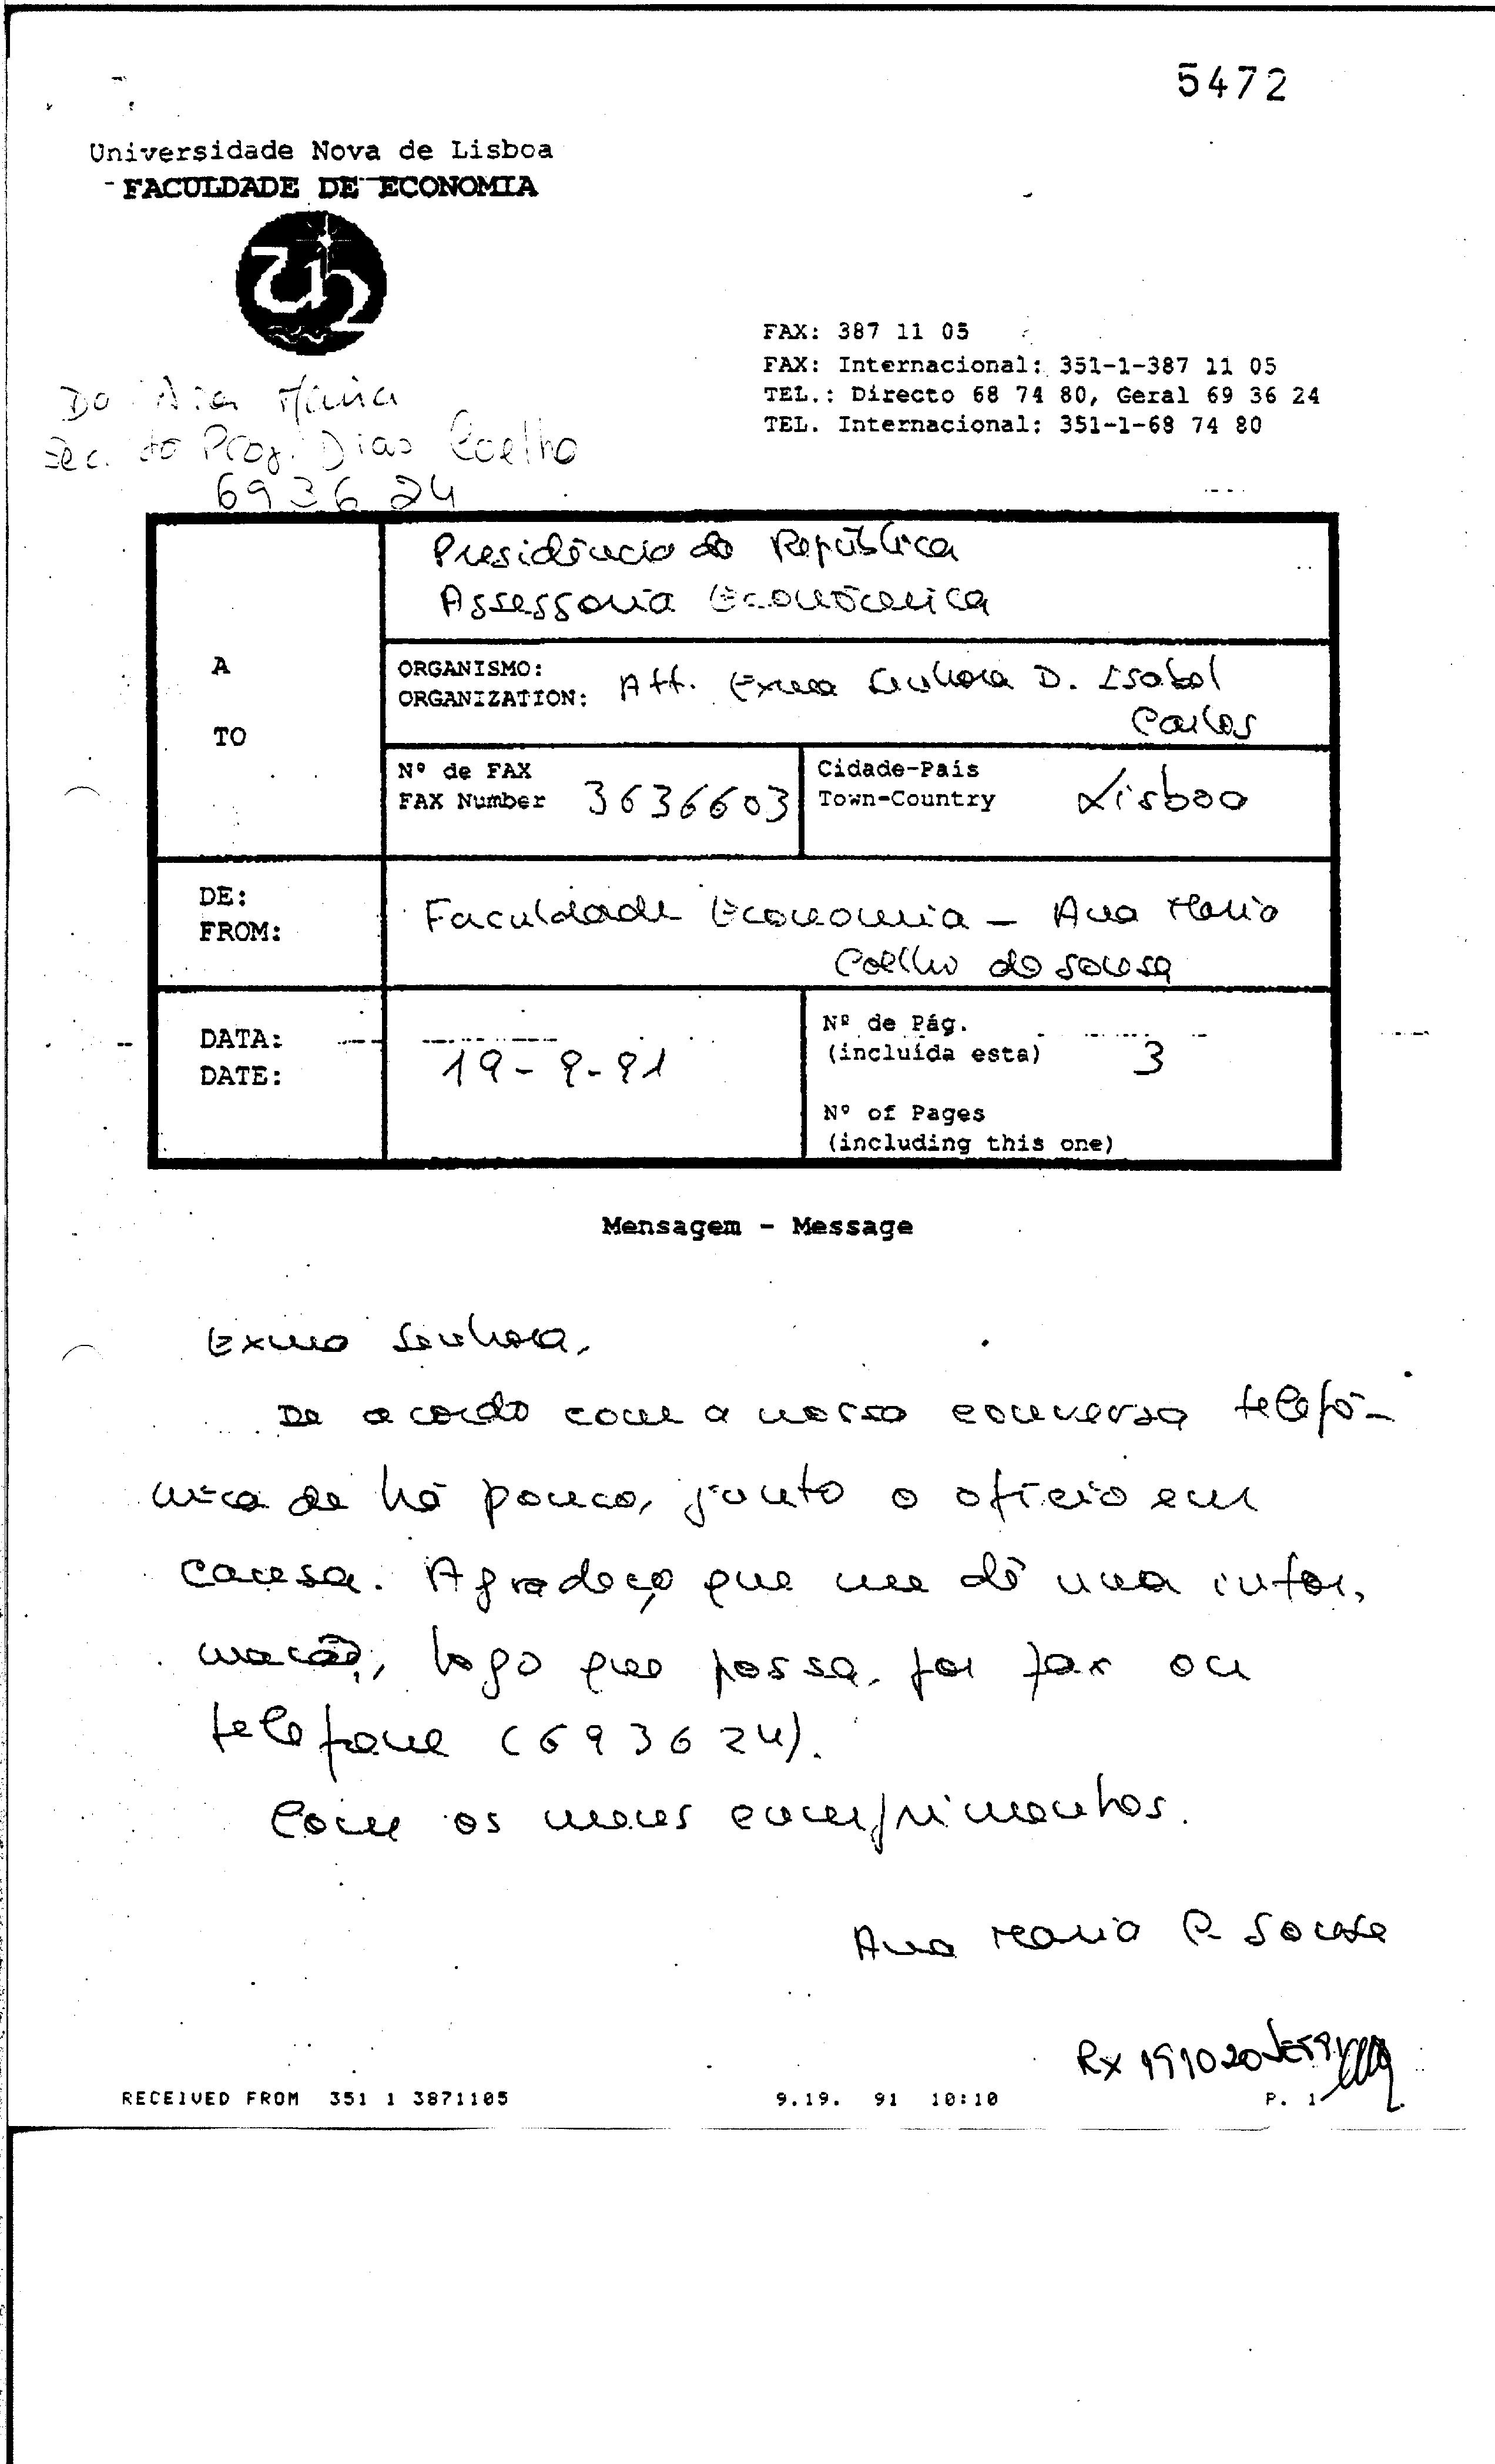 5472
Universidade Nova de Lisboa
FACULDADE DE ECONOMIA
FAX: 387 11 05
FAX: Internacional: 351-1-387 11 05
TEL.: Directo 68 74 80, Geral 69 36 24
TEL. Internacional: 351-1-68 74 80
Da Ana Maria
Sec. do Prof. Dias Coelho
693624
Presidência da República
Assessoria Económica
A
TO
ORGANISMO:
ORGANIZATION:
Att. Exma Senhora D. Isabel
Carlos
Nº de FAX
FAX Number 3636603
Cidade-País
Town-Country Lisboa
DE:
FROM:
Faculdade Economia - Ana Maria
Coelho de Sousa
DATA:
DATE:
19-9-91
Nº de Pág.
(incluída esta) 3
Nº of Pages
(including this one)
Mensagem - Message
Exma Senhora,
De acordo com a nossa conversa telefó-
nica de há pouco, junto o ofício em
causa. Agradeço que me dê uma infor-
mação, logo que possa, por fax ou
telefone (693624).
Com os meus cumprimentos.
Ana Maria C. Sousa
RX 191020
RECEIVED FROM 351 1 3871105 9.19. 91 10:10 P. 1